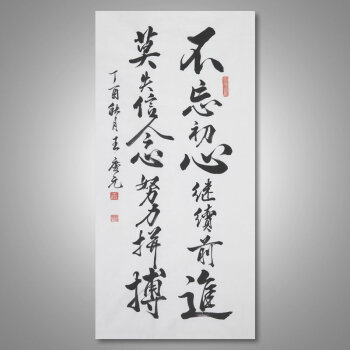 不忘初心继續前進
莫失信念努力拼搏
丁酉秋月王庆元